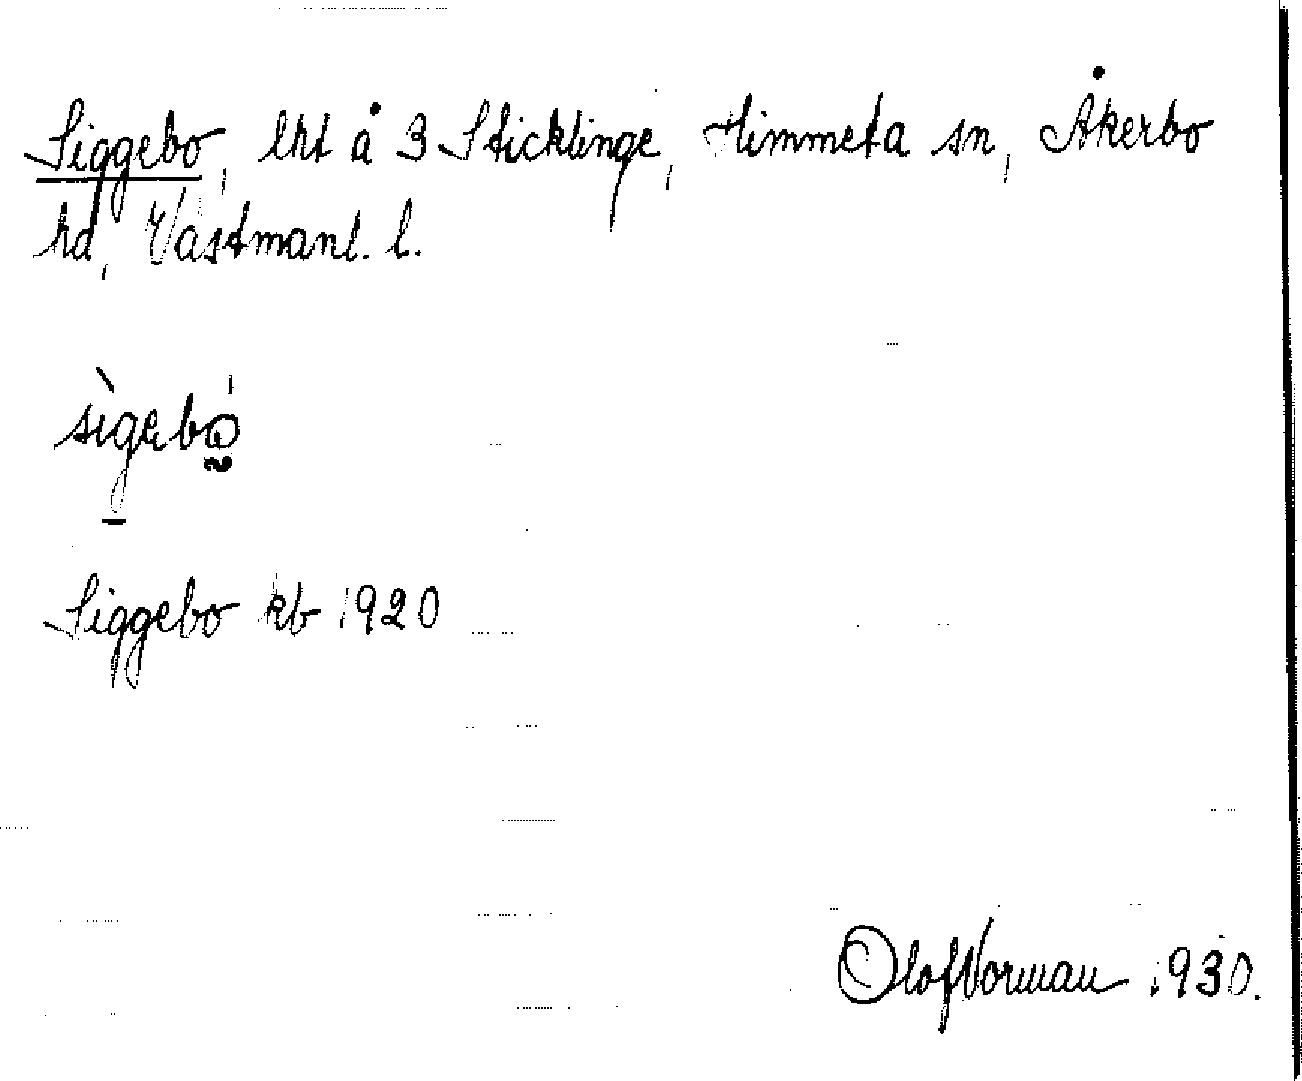 Siggebo, lht å 3 Sticklinge, Himmeta sn, Åkerbo
hd, Västmanl. l.
Siggebo kb 1920
Olof Norman 1930.